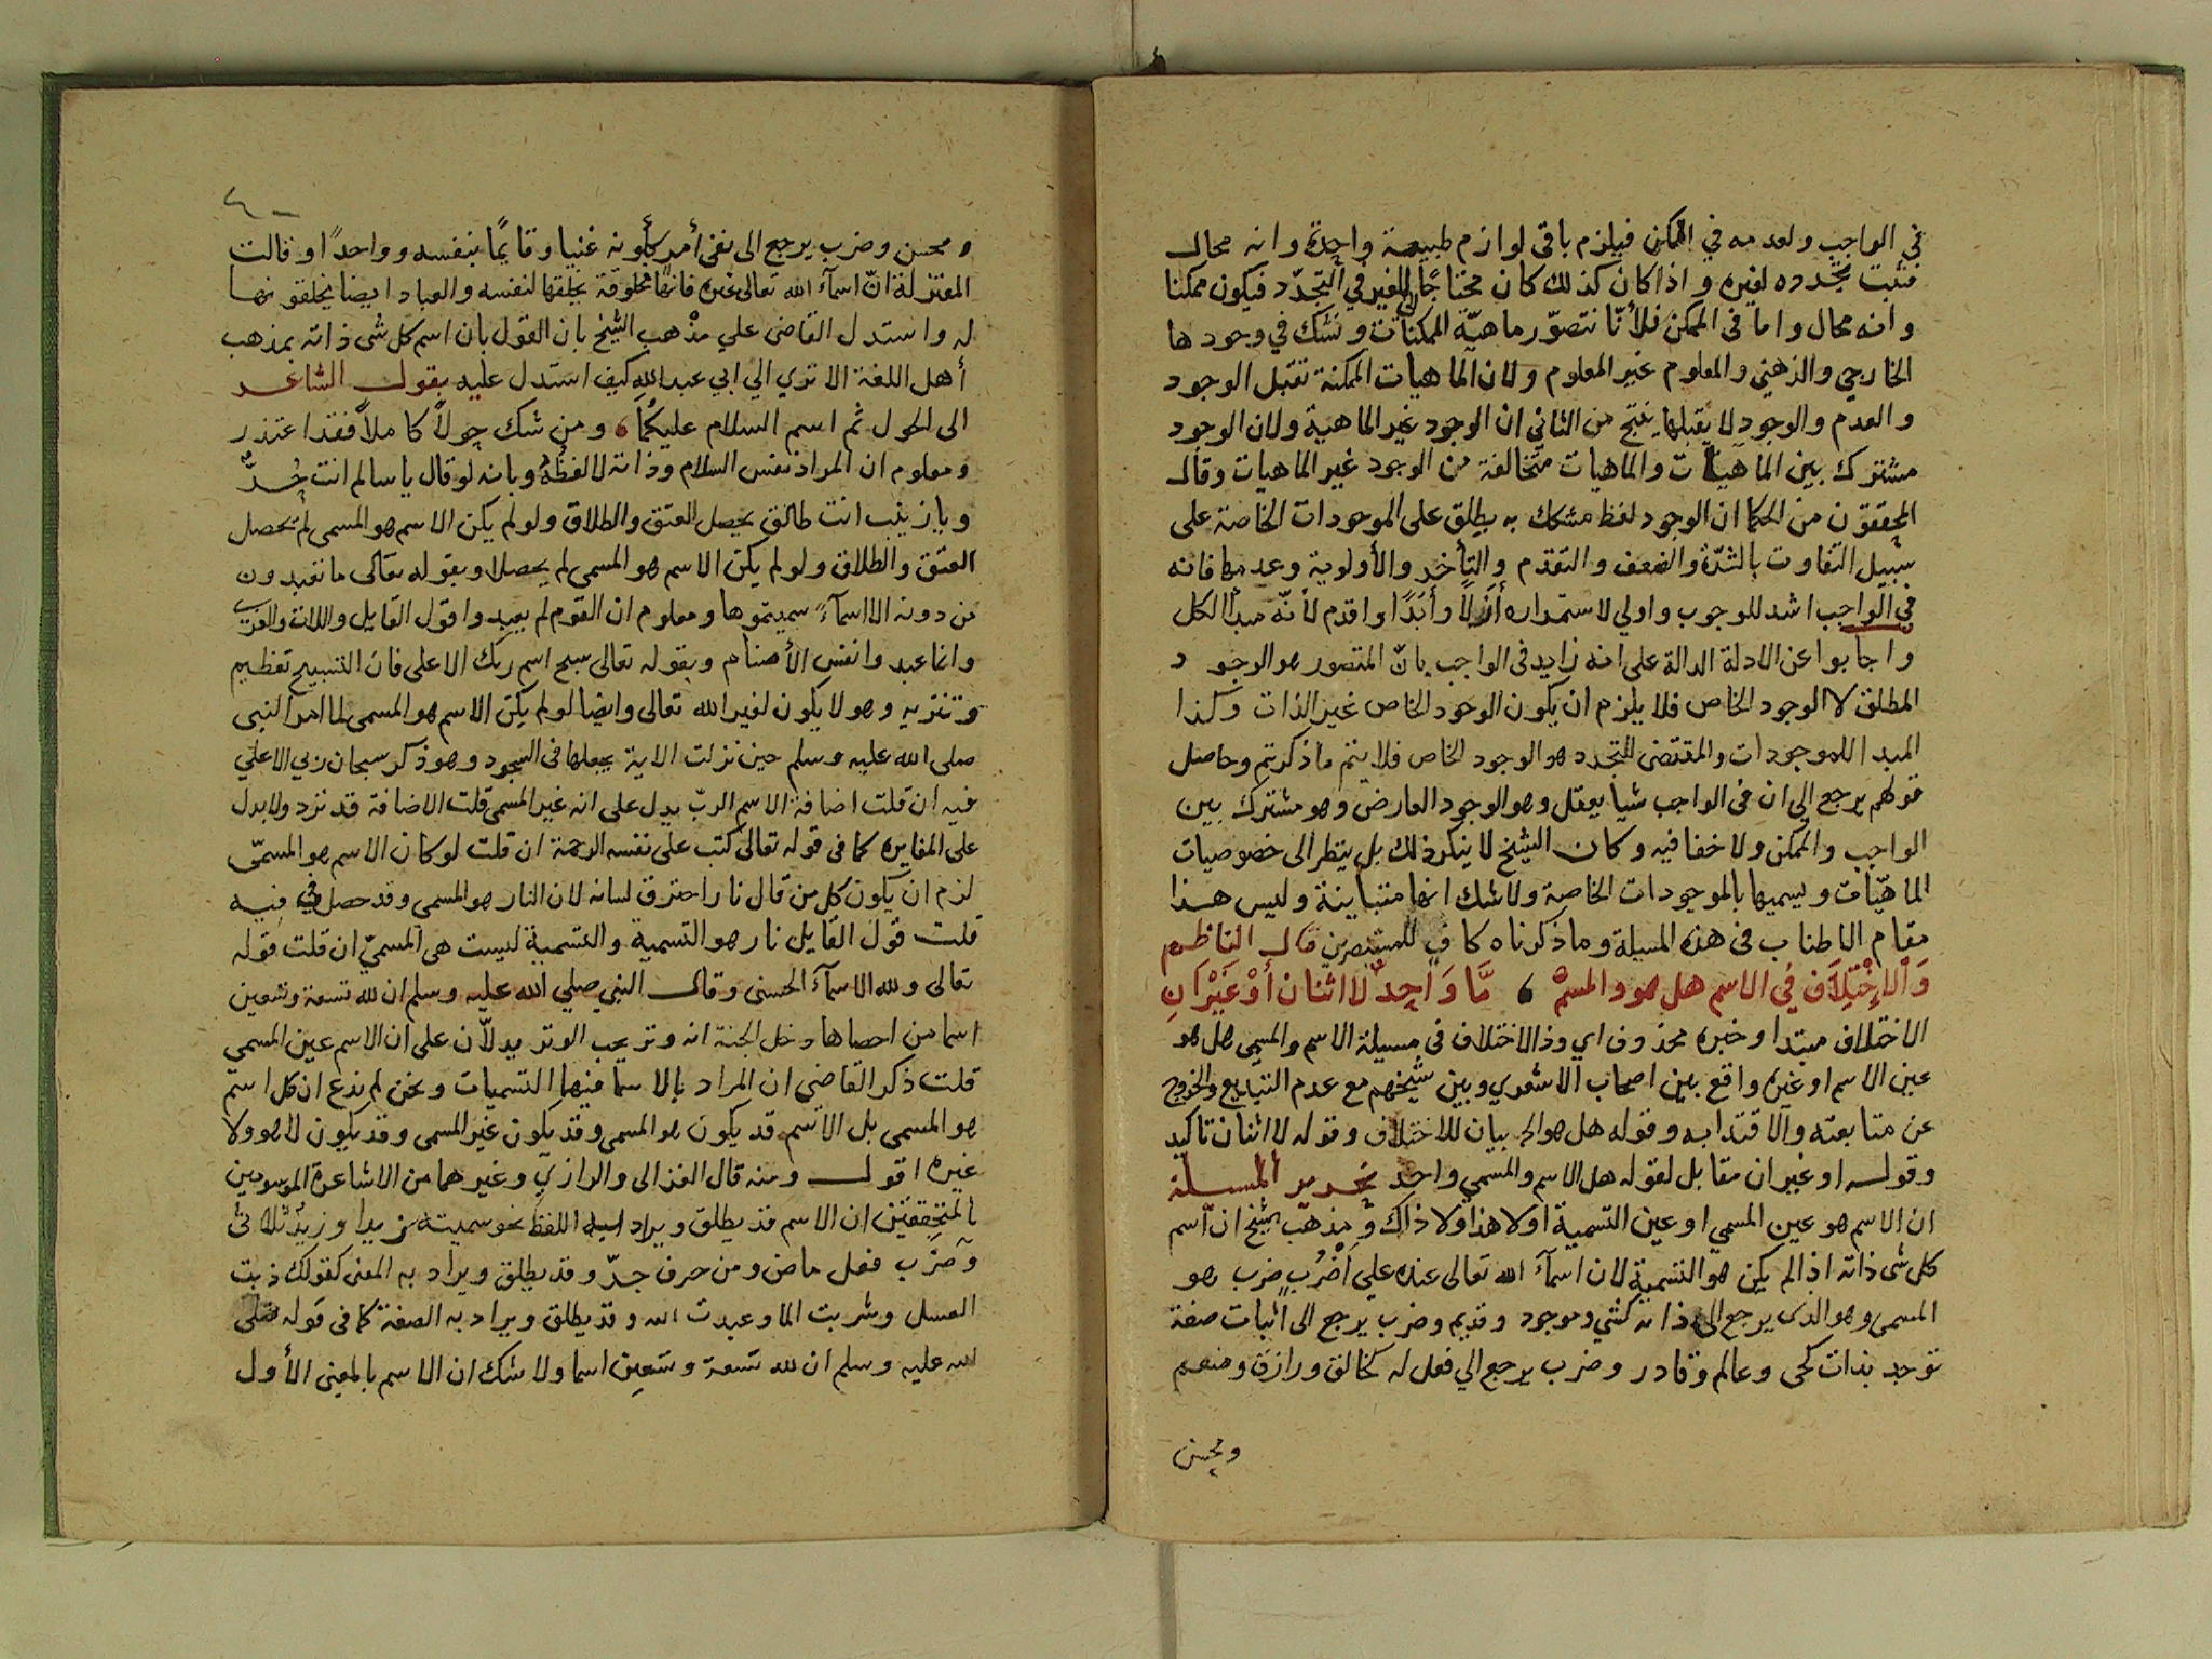 في الواجب ولعدمه في الممكن فيلزم باقى لوازم طبيعة واحدة وانه محال
فثبت تجدده لغيره واذا كان كذلك كان محتاجًا للغير في التجدّد فيكون ممكنا
وانه محال واما فى الممكن فلأنّا نتصوّر ماهيّة الممكنات ونشك في وجودها
الخارجي والذهني والمعلوم غير المعلوم ولان الماهيات الممكنة تقبل الوجود
والعدم والوجود لا يقبلها ينتج من الثاني ان الوجود غير الماهية ولان الوجود
مشترك بين الماهيات والماهيات متخالفة من الوجود غير الماهيات وقال
المحققون من الحكما ان الوجود لفظ مشكك به يطلق على الموجودات الخاصة على
سبيل التفاوت بالشدّة والضعف والتقدم والتأخر والأولوية وعدمها فانه
في الواجب اشد للوجوب واولي لاستمراره أزلاً وأبدًا واقدم لأنّه مبدأ الكل
واجابوا عن الادلة الدالة على انه زايد فى الواجب بانّ المتصور هو الوجود
المطلق لا الوجود الخاص فلا يلزم ان يكون الوجود الخاص غير الذات وكذا
المبدا للموجودات والمقتضى للتجدد هو الوجود الخاص فلا يتم ما ذكرتم وحاصل
قولهم يرجع الي ان فى الواجب شيا يعقل وهو الوجود العارض وهو مشترك بين
الواجب والممكن ولا خفا فيه وكان الشيخ لا ينكر ذلك بل ينظر الى خصوصيات
الماهيّات ويسميها بالموجودات الخاصة ولا شك انها متباينة وليس هذا
مقام الاطناب فى هذه المسيلة وما ذكرناه كاف للمستبصرين قال الناظم
وَالاِخْتِلَاف فى الاسم هل هو والمسمى ، مَّا وَاحِدٌ لا اثنان أوْ غَيْرَانِ
الاختلاف مبتدا وخبره محذوف اي وذا الاختلاف فى مسيلة الاسم والمسمى هل هو
عين الاسم او غيره واقع بين اصحاب الاشعري وبين شيخهم مع عدم التبديع والخروج
عن متابعته والاقتدا به وقوله هل هو الخ بيان للاختلاف وقوله لا اثنان تاكيد
وقوله او غيران مقابل لقوله هل الاسم والمسمي واحد تحرير المسيلة
ان الاسم هو عين المسمي او عين التسمية اولا هذا ولا ذاك ومذهب الشيخ ان اسم
كل شى ذاته اذا لم يكن هو التسمية لان اسمآء الله تعالى عنده علي أضْرُب ضرب هو
المسمى وهو الذى يرجع الى ذاته كشي وموجود وقديم وضرب يرجع الى اثبات صفة
توجد بذات كحى وعالم وقادر وضرب يرجع الي فعل له كخالق ورازق ومنعم
ومحسن
ومحسن وضرب يرجع الى نفى أمر ككونه غنيا وقايمًا بنفسه وواحدًا وقالت
المعتزلة انّ اسمآء الله تعالى غيره فانها مخلوقة يخلقها لنفسه والعباد ايضا يخلقونها
له واستدل القاضى علي مذهب الشيخ بان القول بان اسم كل شى ذاته بمذهب
أهل اللغة الا تري الي ابي عبد الله كيف استدل عليه بقول الشاعر
الى الحول ثم اسم السلام عليكُمَا ، ومن شك حولاً كاملاً فقد اعتذر
ومعلوم ان المراد نفس السلام وذاته لا لفظه وبانه لو قال يا سالم انت حُرٌّ
ويا زينب انت طالق يحصل العتق والطلاق ولو لم يكن الاسم هو المسمى لم يحصل
العتق والطلاق ولو لم يكن الاسم هو المسمى لم يحصلا وبقوله تعالى ما تعبدون
من دونه الا اسمآءً سميتموها ومعلوم ان القوم لم يعبدوا قول القايل واللات والعزى
وانما عبدوا نفس الأصنام وبقوله تعالى سبح اسم ربك الاعلى فان التسبيح تعظيم
وتنزيه وهو لا يكون لغير الله تعالى وايضا لو لم يكن الاسم هو المسمى لما امر النبى
صلى الله عليه وسلم حين نزلت الاية بجعلها فى السجود وهو ذكر سبحان ربي الاعلي
فيه ان قلت اضافة الاسم الربّ يدل على انه غير المسمى قلت الاضافة قد ترد ولا يدل
على المغايره كما فى قوله تعالى كتب على نفسه الرحمة ان قلت لو كان الاسم هو المسمّى
لزم ان يكون كل من قال نارا احترق لسانه لان النار هو المسمى وقد حصل في فيه
قلت قول القايل نار هو التسمية والتسمية ليست هى المسمىّ ان قلت قوله
تعالى ولله الاسمآء الحسنى وقال النبي صلي الله عليه وسلم ان لله تسعة وتسعين
اسما من احصاها دخل الجنة انه وتر يحب الوتر يدلاّن على ان الاسم عين المسمي
قلت ذكر القاضى ان المراد بالاسما فيهما التسميات ونحن لم ندع ان كل اسم
هو المسمى بل الاسم قد يكون هو المسمى وقد يكون غير المسمى وقد يكون لا هو ولا
غيره اقول ومنه قال الغزالى والرازي وغيرهما من الاشاعرة الموسومين
بالمتحققين ان الاسم قد يطلق ويراد به اللفظ نحو سميته زيدا وزيد ثلاثى
وضرب فعل ماض ومن حرف جرّ وقد يطلق ويراد به المعنى كقولك ذبت
العسل وشربت الما وعبدت الله وقد يطلق ويراد به الصفة كما فى قوله صلى
الله عليه وسلم ان لله تسعة وتسعين اسما ولا شك ان الاسم بالمعنى الأول